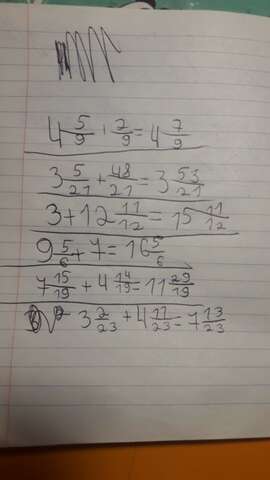 4 5/9 + 2/9 = 4 7/9
3 5/21 + 48/21 = 3 53/21
3 + 12 11/12 = 15 11/12
9 5/6 + 7 = 16 5/6
7 15/19 + 4 14/19 = 11 29/19
3 2/23 + 4 11/23 = 7 13/23